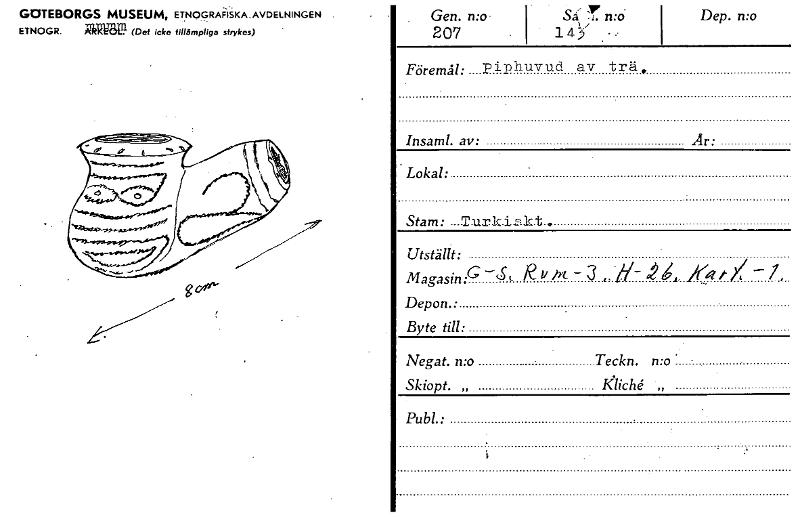 GÖTEBORGS MUSEUM, ETNOGRAFISKA AVDELNINGEN
ETNOGR. ARKEOL. (Det icke tillämpliga strykes)
8 cm
Gen. n:o
207
n:o
143
Dep. n:o
Föremål: Piphuvud av trä.
Insaml. av: År:
Lokal:
Stam: Turkiskt.
Utställt:
Magasin: G-S. Rum-3. H-26. Kart.-1.
Depon.:
Byte till:
Negat. n:o Teckn. n:o
Skiopt. „ Kliché „
Publ.: